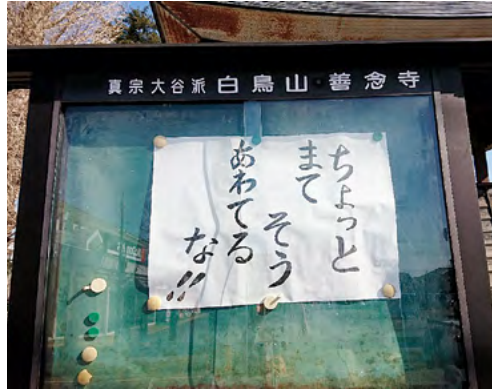 真宗大谷派 白鳥山・善念寺
ちょっと
まて
そう
あわてる
な!!